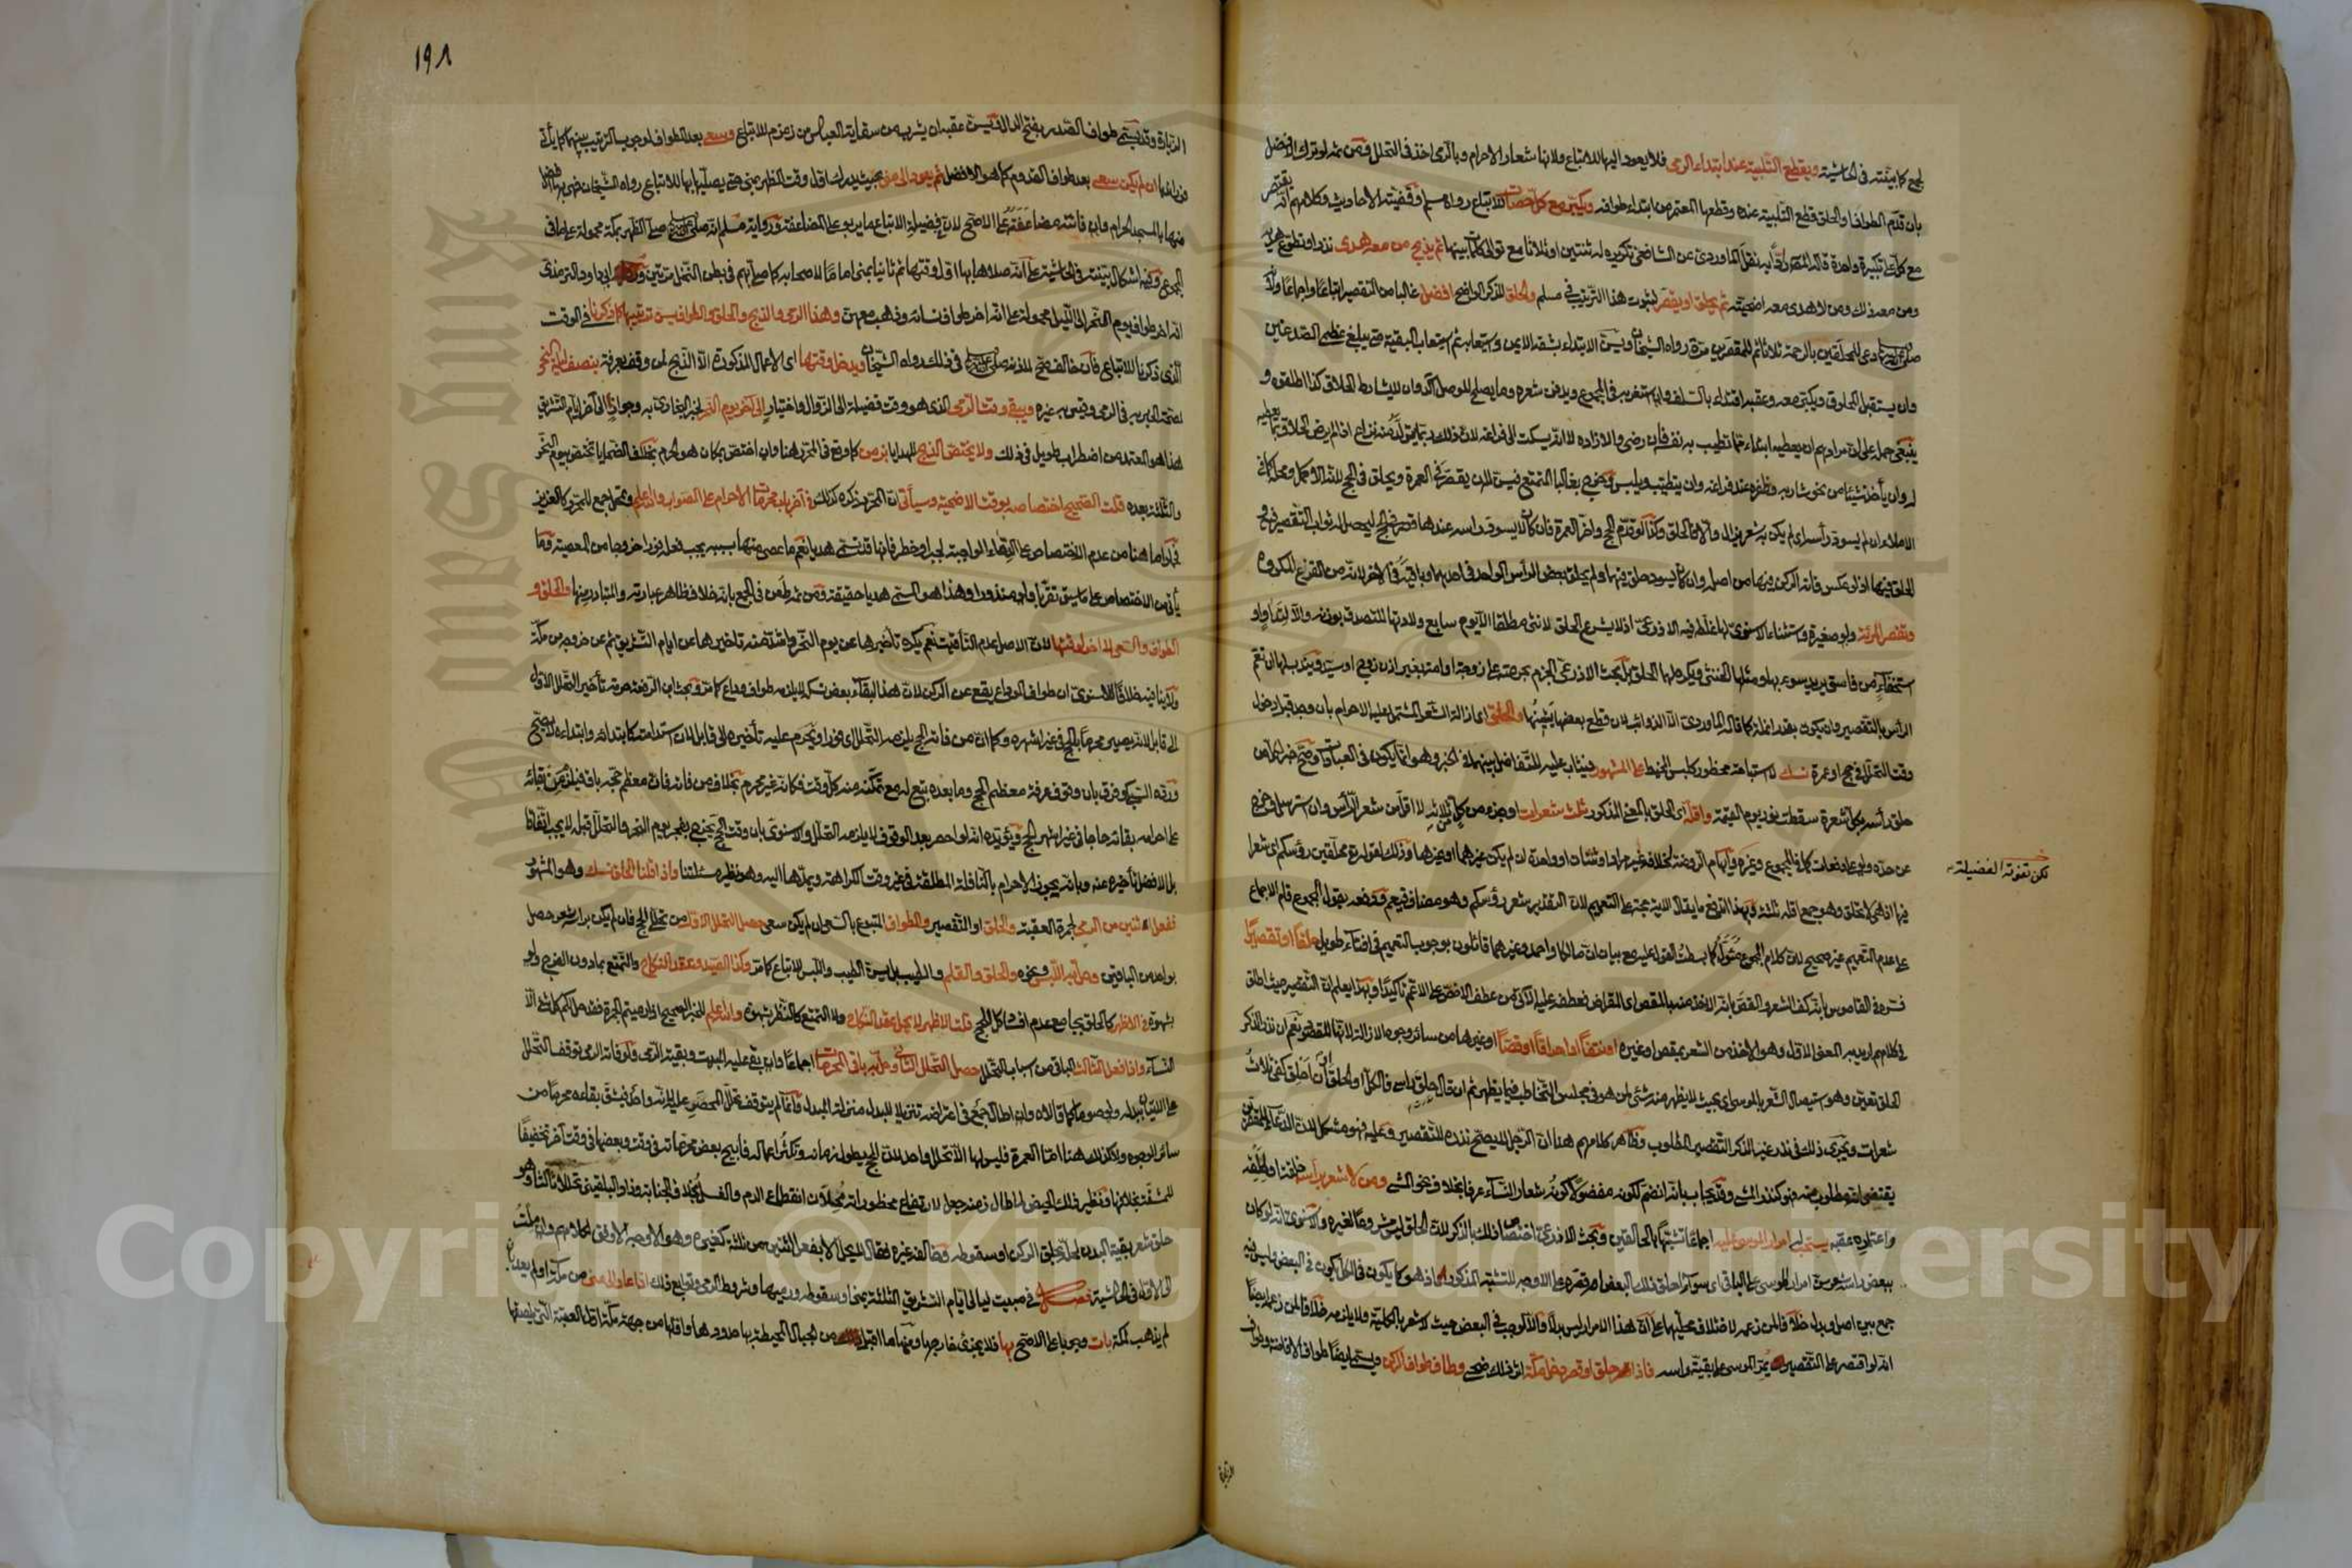 لجمع كما بينته في الحاشية ويقطع التلبية عند ابتداء الرمي فلا يعود اليها للاتباع ولانها شعار الاحرام وبالرمي اخذ في التحلل ومن ثم لو ترك الافضل
بان قدم الطواف او الحلق قطع التلبية عنده وقطعها المعتمر من ابتداء طوافه ويكبر مع كل حصاة للاتباع رواه مسلم وقضيته الاحاديث وكلامهم انه يقتصر
مع كل على تكبيرة واحدة نقل الماوردي عن الشافعي تكريره له ثنتين او ثلاثا مع توالي كلمات بينها ثم يذبح من معه هدي نذر او تطوع
ومن معه ذلك ومن لا هدي معه اضحيته ثم يحلق او يقصر لثبوت هذا الترتيب في مسلم والحلق للذكر الواضح افضل غالبا من التقصير اتباعا واجماعا ولانه
صلى الله عليه وسلم دعى للمحلقين بالرحمة ثلاثا ثم للمقصرين مرة رواه الشيخان ويسن الابتداء بشقه الايمن واستيعابه ثم استيعاب البقية حتى يبلغ عظمي الصدغين
وان يستقبل المحلوق ويكبر معه وعقبه اقتداء بالسلف وان استغربه في المجموع ويدفن شعره وما يصلح للوصل آكد وان لا يشارط الحلاق كذا اطلقوه و
ينبغي حمله على ان مرادهم ان يعطيه ابتداء ما تطيب به نفسه فان رضي والا زاده لا انه يسكت الى فراغه لان ذلك ربما يتولد منه نزاع اذا لم يرض الحلاق بما يعطيه
له وان يأخذ شيئا من نحو شاربه وظفره عند فراغه وان يتطيب ويلبس وخرج بغالبا المتمتع فيسن له ان يقصر في العمرة ويحلق في الحج لانه الاكمل ومحله كما في
الاملاء ان لم يسود رأسه اي لم يكن به شعر يزال والا فالحلق وكذا لو قدم الحج واخر العمرة فان كان لا يسود رأسه عندها قصر في الحج ليحصل له ثواب التقصير فيه و
الحلق فيها اذ لو عكس فاته الركن فيها من اصله وان كان يسود حلق فيهما ولم يحلق بعض الرأس الواحد في احدهما وباقيه في الآخر لانه من القزع المكروه
وتقصر المرأة ولو صغيرة واستثناء الاسنوي لها غلطه فيه الاذرعي اذ لا يشرع الحلق لانثى مطلقا الا يوم سابع ولادتها للتصدق بوزنه والا لتداو او
استخفاء من فاسق يريد سوء بها ومثلها الخنثى ويكره لها الحلق بل بحث الاذرعي الجزم بحرمته على زوجة او امة بغير اذن زوج او سيد ويندب لها ان تعم
الرأس بالتقصير وان يكون بقدر انملة كما قاله الماوردي الا الذوائب لان قطع بعضها يشينها والحلق اي ازالة الشعر المشتمل عليه الاحرام بان وجد قبل دخول
وقت التحلل في حج او عمرة نسك لا استباحة محظور كلبس المخيط على المشهور فيثاب عليه للتفاضل بينهما في الخبر وهو انما يكون في العبادات وصح خبر لكل من
حلق رأسه بكل شعرة سقطت نور يوم القيمة واقله اي الحلق بالمعنى المذكور ثلث شعرات او جزء من كل من ثلاثة لا اقل من شعر الرأس وان استرسل وخرج
عن حده ولو على دفعات كما في المجموع وغيره وايهام الروضة خلافه غير مراد او ثنتان او واحدة ان لم يكن غيرهما او غيرها وذلك لقوله تعالى محلقين رؤسكم اي شعرا
لكن تفوته الفضيلة
فيها اذ هي لا تحلق وهو جمع اقله ثلثة وبهذا اندفع ما يقال الاية حجة على التعميم لان التقدير شعر رؤسكم وهو مضاف فيعم ودفعه بقول المجموع قام الاجماع
على عدم التعميم غير صحيح لان كلام المجموع كما بسطت القول عليه مع بيان ان مالكا واحمد وغيرهما قائلون بوجوب التعميم في افتاء طويل حلقا او تقصيرا
فسره في القاموس بانه كف الشعر والقص بانه الاخذ منه بالمقص اي المقراض فعطفه عليه الآتي من عطف الاخص على الاعم تأكيدا وبهذا يعلم ان التقصير حيث اطلق
في كلامهم اريد به المعنى الاول وهو الاخذ من الشعر بمقص او غيره او نتفا او احراقا او قصا او غيرها من سائر وجوه الازالة لانها المقصود نعم ان نذر الذكر
الحلق تعين وهو استيصال الشعر بالموسى اي بحيث لا يظهر منه شيء لمن هو في مجلس التخاطب فيما يظهر ثم ان قال حلق رأسي فالكل او الحلق او ان احلق كفى ثلاث
شعرات ويجري ذلك في نذر غير الذكر التقصير المطلوب وظاهر كلامهم هنا ان الرجل لا يصح نذره للتقصير وعليه فهو مشكل لان الدعاء للمقصرين
يقتضي انه مطلوب منه فهو كنذر المشي وقد يجاب بانه انضم لكونه مفضولا كونه شعار النساء عرفا بخلافه في نحو المشي ومن لا شعر برأسه خلقة او لحلقه
واعتماره عقبه يستحب له امرار الموسى عليه اجماعا تشبها بالحالقين وبحث الاذرعي اختصاص ذلك بالذكر لان الحلق ليس مشروعا لغيره والاسنوي انه لو كان
ببعض رأسه شعر سن امرار الموسى على الباقي اي سواء احلق ذلك البعض ام قصره على الاوجه للتشبه المذكور اذ هو كما يكون في الكل يكون في البعض وليس فيه
جمع بين اصل وبدل خلافا لمن زعمه لاختلاف محليهما على ان هذا الامرار ليس بدلا والا لوجب في البعض حيث لا شعر بالكلية ولا يلزمه خلافا لمن زعمه ايضا
انه لو اقتصر على التقصير يمر الموسى على بقية رأسه فاذا حلق او قصر دخل مكة اثر ذلك ضحى وطاف طواف الركن ويسمى ايضا طواف الافاضة وطواف
الزيارة
١٩٨
الزيارة وقد يسمى طواف الصدر بفتح الدال ويسن عقبه ان يشرب من سقاية العباس من زمزم للاتباع وسعى بعد الطواف لوجوب الترتيب بينهما كما يأتي
فورا ندبا ان لم يكن سعى بعد طواف القدوم كما هو الافضل ثم يعود الى منى بحيث يدرك اول وقت الظهر بمنى حتى يصليها بها للاتباع رواه الشيخان فهي بها افضل
منها بالمسجد الحرام وان فاتته مضاعفته على الاصح لان في فضيلة الاتباع ما يربو على المضاعفة ورواية مسلم انه صلى الله عليه وسلم صلى الظهر بمكة محمولة على ما في
المجموع وفيه اشكال بينته في الحاشية على انه صلاها بها اول وقتها ثم ثانيا بمنى اماما لاصحابه كما صلى بهم في بطن النخل مرتين ورواية ابي داود الترمذي
انه اخر طواف يوم النحر الى الليل محمولة على انه اخر طواف نسائه وذهب معهن وهذا الرمي والذبح والحلق والطواف يسن ترتيبها كما ذكرنا في الوقت
الذي ذكرنا للاتباع فان خالف صح لاذنه صلى الله عليه وسلم في ذلك رواه الشيخان ويدخل وقتها اي الاعمال المذكورة الا الذبح لمن وقف بعرفة بنصف ليلة النحر
لصحة الخبر به في الرمي وقيس به غيره ويبقى وقت الرمي الذي هو وقت فضيلة الى الزوال واختيار الى آخر يوم النحر لخبر البخاري به وجواز الى آخر ايام التشريق
هذا هو المعتمد من اضطراب طويل في ذلك ولا يختص الذبح للهدايا بزمن كما وقع في المحرر هنا وان اختص بمكان هو الحرم بخلاف الضحايا تختص بيوم النحر
والثلثة بعده قلت الصحيح اختصاصه بوقت الاضحية وسيأتي ان المحرر ذكره كذلك في آخر باب محرمات الاحرام على الصواب والله اعلم
ما هنا من عدم الاختصاص على الدماء الواجبة لجبر او حظر فانها قد تسمى هديا نعم ما عصى منها بسببه يجب فعله فورا خروجا من المعصية وما
يأتي من الاختصاص على ما سيق تقربا ولو منذورا وهذا هو المسمى هديا حقيقة ومن ثم طعن في الجمع بانه خلاف ظاهر عبارته والمتبادر منها والحلق و
الطواف والسعي لا آخر لوقتها لان الاصل عدم التاقيت نعم يكره تأخيرها عن يوم النحر واشد منه تأخيرها عن ايام التشريق ثم عن خروجه من مكة
ولا ينافيه خلافا للاسنوي ان طواف الوداع يقع عن الركن لان هذا البقاء بعض نسك لا يلزمه طواف وداع كما مر وبحث ابن الرفعة حرمة تأخير التحلل الاول
الى قابل لانه يصير محرما بالحج في غير اشهره وكما ان من فاته الحج يلزمه التحلل اي فورا ويحرم عليه تأخيره الى قابل لان استدامته كابتدائه وابتداؤه لا يصح
ورده السبكي وفرق بان وقوف عرفة معظم الحج وما بعده تبع له مع تمكنه منه كل وقت فكانه غير محرم بخلاف من فاته فان معظم حجه باق فيلزمه من بقائه
على احرامه بقائه حاجا في غير اشهر الحج ويؤيده انه لو احصر بعد الوقوف لا يلزمه التحلل والاسنوي بان وقت الحج يخرج بفجر يوم النحر والتحلل قبله لا يجب اتفاقا
بل الافضل تأخيره عنه وبانه يجوز الاحرام بالنافلة المطلقة في غير وقت الكراهة ويمدها اليه وهو نظير مسئلتنا واذا قلنا الحلق نسك وهو المشهور
ففعل اثنين من الرمي لجمرة العقبة والحلق او التقصير والطواف المتبوع بالسعي ان لم يكن سعى حصل التحلل الاول من تحلل الحج فان لم يكن برأسه شعر حصل
بواحد من الباقيين وحل به اللبس ونحوه والحلق والقلم والطيب بل يسن الطيب واللبس للاتباع كما مر وكذا الصيد وعقد النكاح والتمتع بما دون الفرج ولو
بشهوة في الاظهر كالحلق بجامع عدم افساد كل للحج قلت الاظهر لا يحل عقد النكاح ولا التمتع كالنظر بشهوة والله اعلم للخبر الصحيح اذا رميتم الجمرة فقد حل لكم كل شيء الا
النساء واذا فعل الثالث الباقي من اسباب التحلل حصل التحلل الثاني وحل به باقي المحرمات اجماعا وان بقي عليه المبيت وبقية الرمي ولو فاته الرمي توقف التحلل
على الاتيان ببدله ولو صوما كما قالاه وان اطال جمع في اعتراضه تنزيلا للبدل منزلة المبدل وانما لم يتوقف تحلل المحصر على بدله فيشق بقاءه محرما من
سائر الوجوه ولا كذلك هنا اما العمرة فليس لها الا تحلل واحد لان الحج يطول زمانه وتكثر اعماله فابيح بعض محرماته في وقت وبعضها في وقت آخر تخفيفا
للمشقة بخلافها ونظير ذلك الحيض لما طال زمنه جعل لارتفاع محظوراته محلان انقطاع الدم والغسل بخلاف الجنابة وزاد البلقيني تحللا ثالثا وهو
حلق شعر بقية البدن لحله بحلق الركن او سقوطه وخالفه غيره فقال لا يحل الا بفعل اثنين من ثلثة كغيره وهو الاوجه الاوفق لكلامهم وان ملت
الى الاول في الحاشية فصل في مبيت ليالي ايام التشريق الثلثة بمنى او سقوطه ورميها وشروط الرمي وتوابع ذلك اذا عاد الى منى من مكة او لم يعد بان
لم يذهب لمكة بات وجوبا على الاصح بها فلا يجزئ خارجها ومنها ما اقبل من الجبال المحيطة بها حدودها واولها من جهة مكة اول العقبة التي يلصقها
Copyright © King Saud University
King Saud University